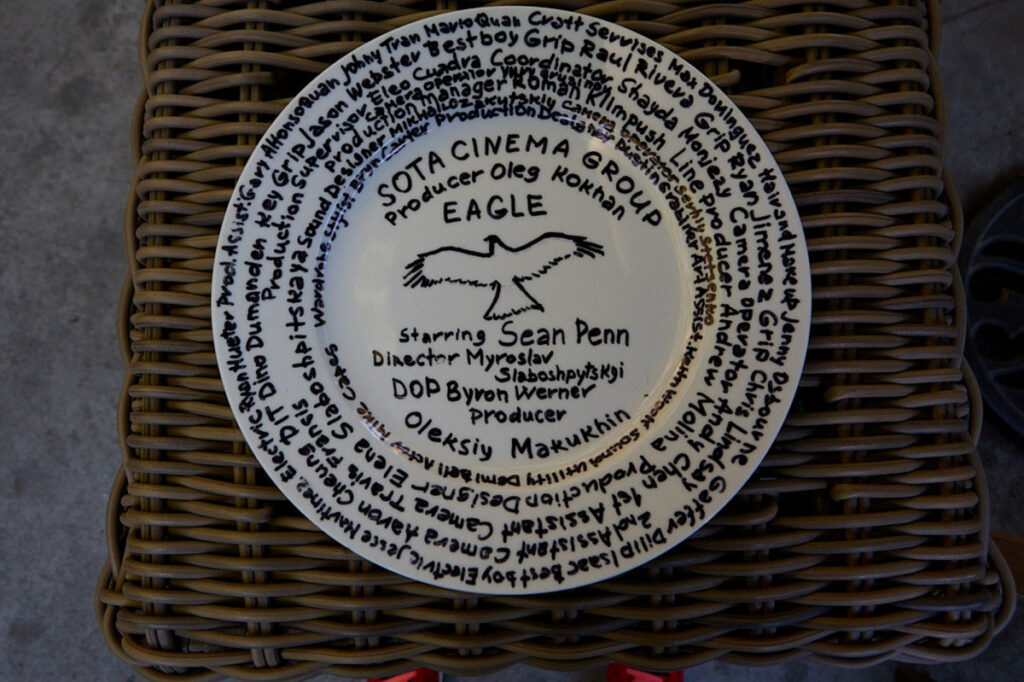 SOTA CINEMA GROUP
Producer Oleg Kokhan
EAGLE
Starring Sean Penn
Director Myroslav
Slaboshpytskyi
DOP Byron Werner
Producer
Oleksiy Makukhin
Prod. Assist: Gary Alfonso Quan Johny Tran Mario Quan Craft Servises Max Dominguez Hair and Make up Jenny Desouvne
Gaffer Dilip Isaac Best boy Electric Jesse Martinez Electric Ryan Hueter
DIT Dino Dumanden Key Grip Jason Webster Best boy Grip Raul Rivera Grip Ryan Jimenez Grip Chris Lindsay
2nd Assistant Camera Aaron Cheung
Production Supervisor Eleo Cuadra Coordinator Shayda Monjezy Camera Operator Andy Chen 1st Assistant Camera Travis Francis
Production manager Roman Klimpush Line Producer Andrew Molina Production Designer Elena Slaboshpitskaya Sound Designer
Production Designer
Art Assist Keith Wood Sound Utility Demi Bell Actor Mike Capes
Wardrobe